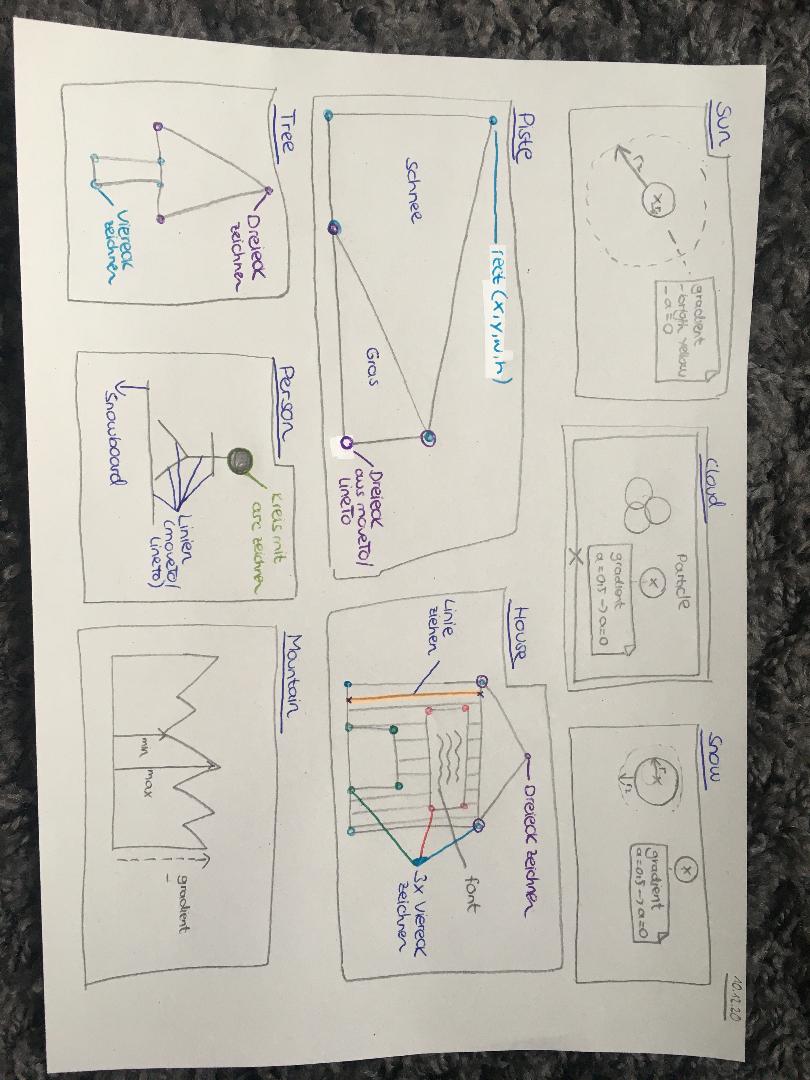 10.12.20
Sun
gradient
- brigth yellow
- a=0
r1
r2
Cloud
Particle
gradient
a=0,5 -> a=0
Snow
r1
r2
gradient
a=0,5 -> a=0
Piste
rect (x,y,w,h)
Schnee
Gras
Dreieck
aus moveTo/
LineTo
House
Dreieck zeichnen
font
Linie
ziehen
3x Viereck
zeichnen
Tree
Dreieck
zeichnen
Viereck
zeichnen
Person
Kreis mit
arc zeichnen
Linien
(moveTo/
LineTo)
Snowboard
Mountain
min
max
gradient
-